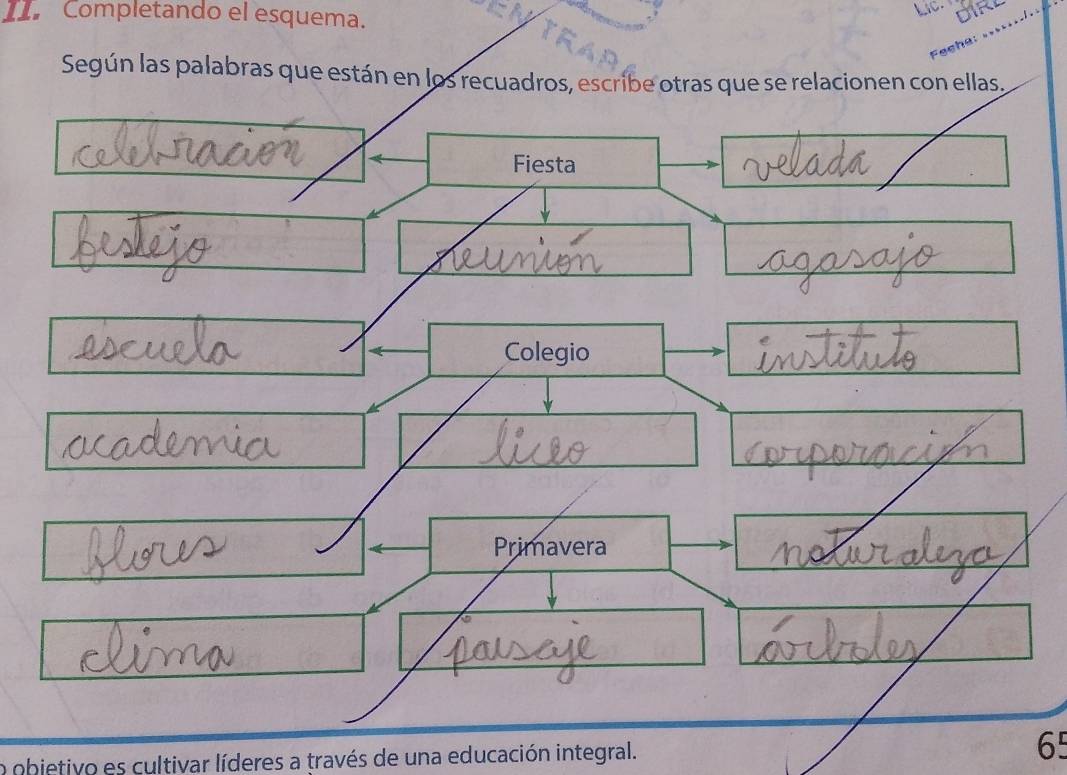 II. Completando el esquema.
EN TRABA
Lic.
DIRE
Fecha: ......./...
Según las palabras que están en los recuadros, escribe otras que se relacionen con ellas.
celebración Fiesta velada
festejo reunión agasajo
escuela Colegio instituto
academia liceo corporación
flores Primavera naturaleza
clima paisaje árboles
objetivo es cultivar líderes a través de una educación integral.
65